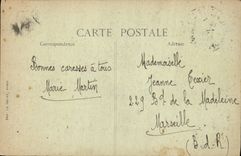 CARTE POSTALE
Correspondance
Adresse
Bonnes caresses à tous
Marie Martin
Mademoiselle
Jeanne Texier
229 Bd de la Madeleine
Marseille
(B-d-R)